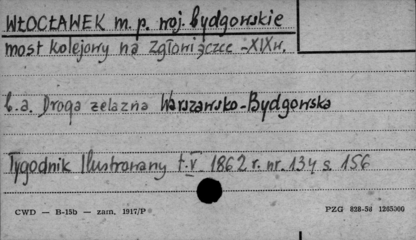 WŁOCŁAWEK m.p. woj. Bydgoskie
most kolejowy na Zgłowiączce - XIXw.
b.a. Droga żelazna Warszawsko-Bydgowska
Tygodnik Ilustrowany t.V 1862 r. nr. 134 s. 156
CWD — B-15b — zam. 1917/P
PZG 828-58 1265500